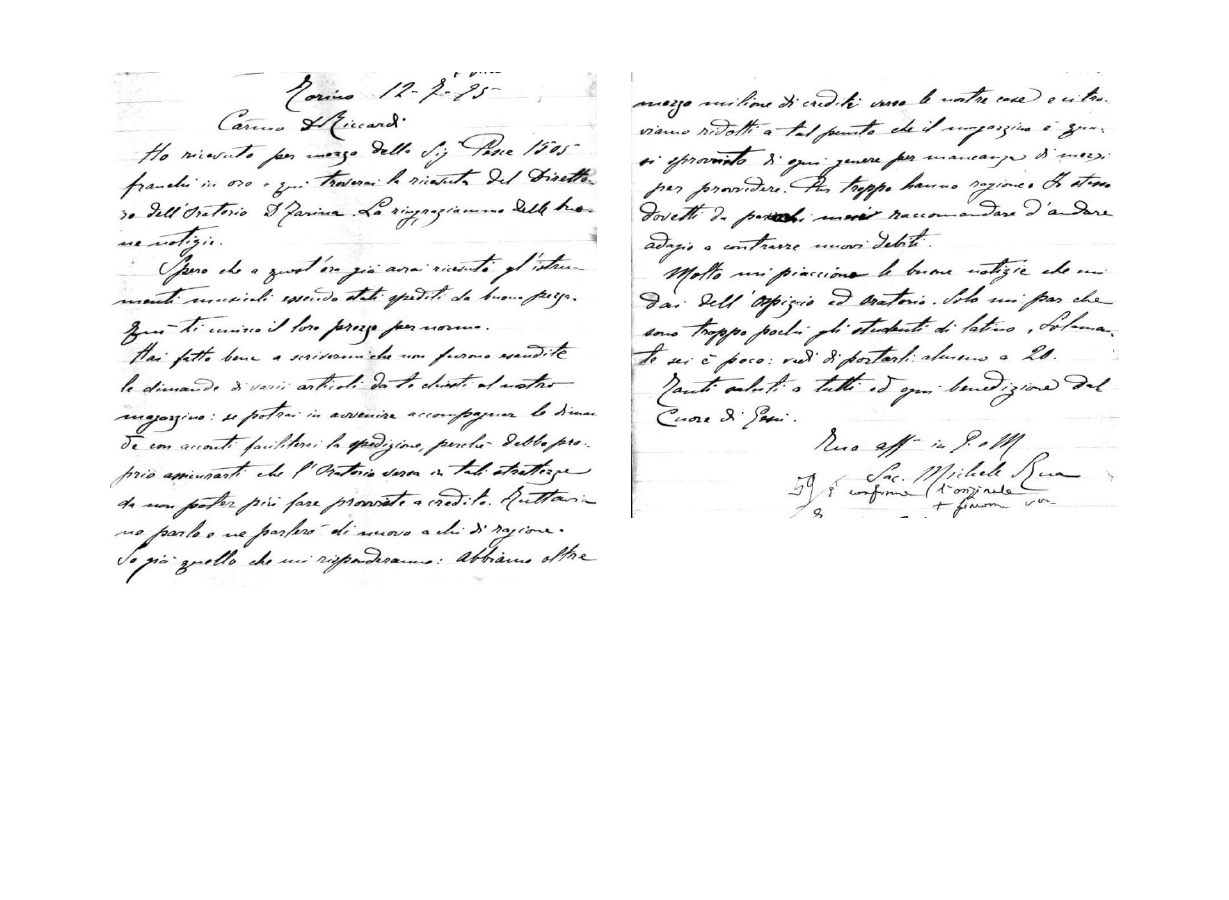 Torino 12-7-95
Carmo D Riccardi
Ho ricevuto per mezzo dello Sig Pesce 1505
franchi in oro e qui troverai la ricevuta del Diretto-
re dell'Oratorio D Farina. La ringraziammo delle buo-
ne notizie.
Spero che a quest'ora già avrai ricevuto gl'istru-
menti musicali essendo stati spediti da buona pezza.
Qui ti unisco il loro prezzo per norma.
Hai fatto bene a scrivermi che non furono esaudite
le dimande di varii articoli da te chiesti al nostro
magazzino: se potrai in avvenire accompagnar le diman
de con acconti faciliterai la spedizione, perchè debbo pro-
prio assicurarti che l'Oratorio versa in tali strettezze
da non poter più fare provviste a credito. Tuttavia
ne parlo e ne parlerò di nuovo a chi di ragione.
So già quello che mi risponderanno: abbiamo oltre
mezzo milione di crediti verso le nostre case e ci tro-
viamo ridotti a tal punto che il magazzino è qua-
si sprovvisto di ogni genere per mancanza di mezzi
per provvedere. Pur troppo hanno ragione. Io stesso
dovetti da parecchi mesi raccomandare d'andare
adagio a contrarre nuovi debiti.
Molto mi piacciono le buone notizie che mi
dai dell'Ospizio ed Oratorio. Solo mi par che
sono troppo pochi gli studenti di latino, Solamen-
te sei è poco: vedi di portarli almeno a 20.
Tanti saluti a tutti ed ogni benedizione dal
Cuore di Gesù.
Tuo aff in G. e M
Sac. Michele Rua
59 è conforme l'originale
+ giacomo